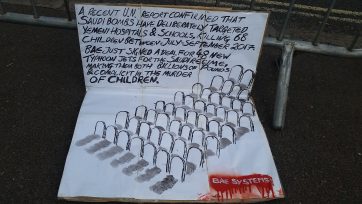 A RECENT U.N. REPORT CONFIRMED THAT
SAUDI BOMBS HAVE DELIBERATELY TARGETED
YEMENI HOSPITALS & SCHOOLS, KILLING 68
CHILDREN BETWEEN JULY-SEPTEMBER 2017.
BAE JUST SIGNED A DEAL FOR 48 NEW
TYPHOON JETS FOR THE SAUDI REGIME,
MAKING THEM BOTH BILLIONS OF POUNDS
& COMPLICIT IN THE MURDER
OF CHILDREN.
BAE SYSTEMS